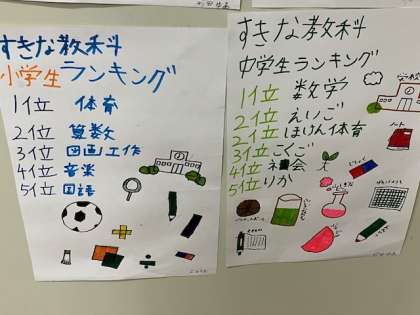 すきな教科
小学生ランキング
1位 体育
2位 算数
3位 図画工作
4位 音楽
5位 国語
すきな教科
中学生ランキング
1位 数学
2位 えいご
2位 ほけん体育
3位 こくご
4位 社会
5位 りか
学校
ノート